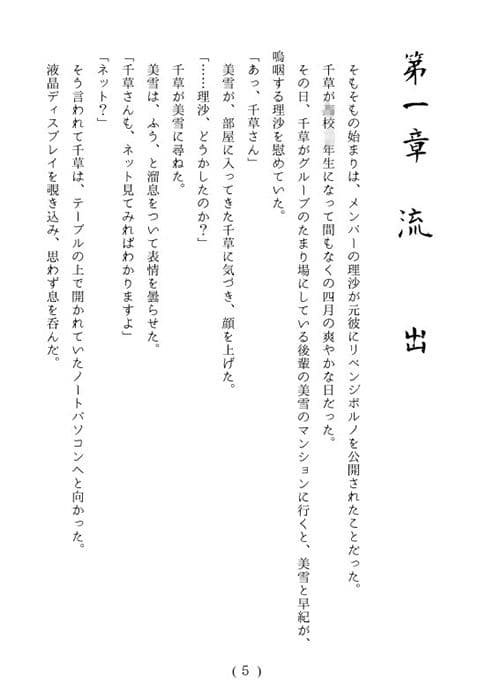 第一章 流 出
そもそもの始まりは、メンバーの理沙が元彼にリベンジポルノを公開されたことだった。
千草が 校 年生になって間もなくの四月の爽やかな日だった。
その日、千草がグループのたまり場にしている後輩の美雪のマンションに行くと、美雪と早紀が、
嗚咽する理沙を慰めていた。
「あっ、千草さん」
美雪が、部屋に入ってきた千草に気づき、顔を上げた。
「……理沙、どうかしたのか?」
千草が美雪に尋ねた。
美雪は、ふう、と溜息をついて表情を曇らせた。
「千草さんも、ネット見てみればわかりますよ」
「ネット?」
そう言われて千草は、テーブルの上で開かれていたノートパソコンへと向かった。
液晶ディスプレイを覗き込み、思わず息を呑んだ。
(5)